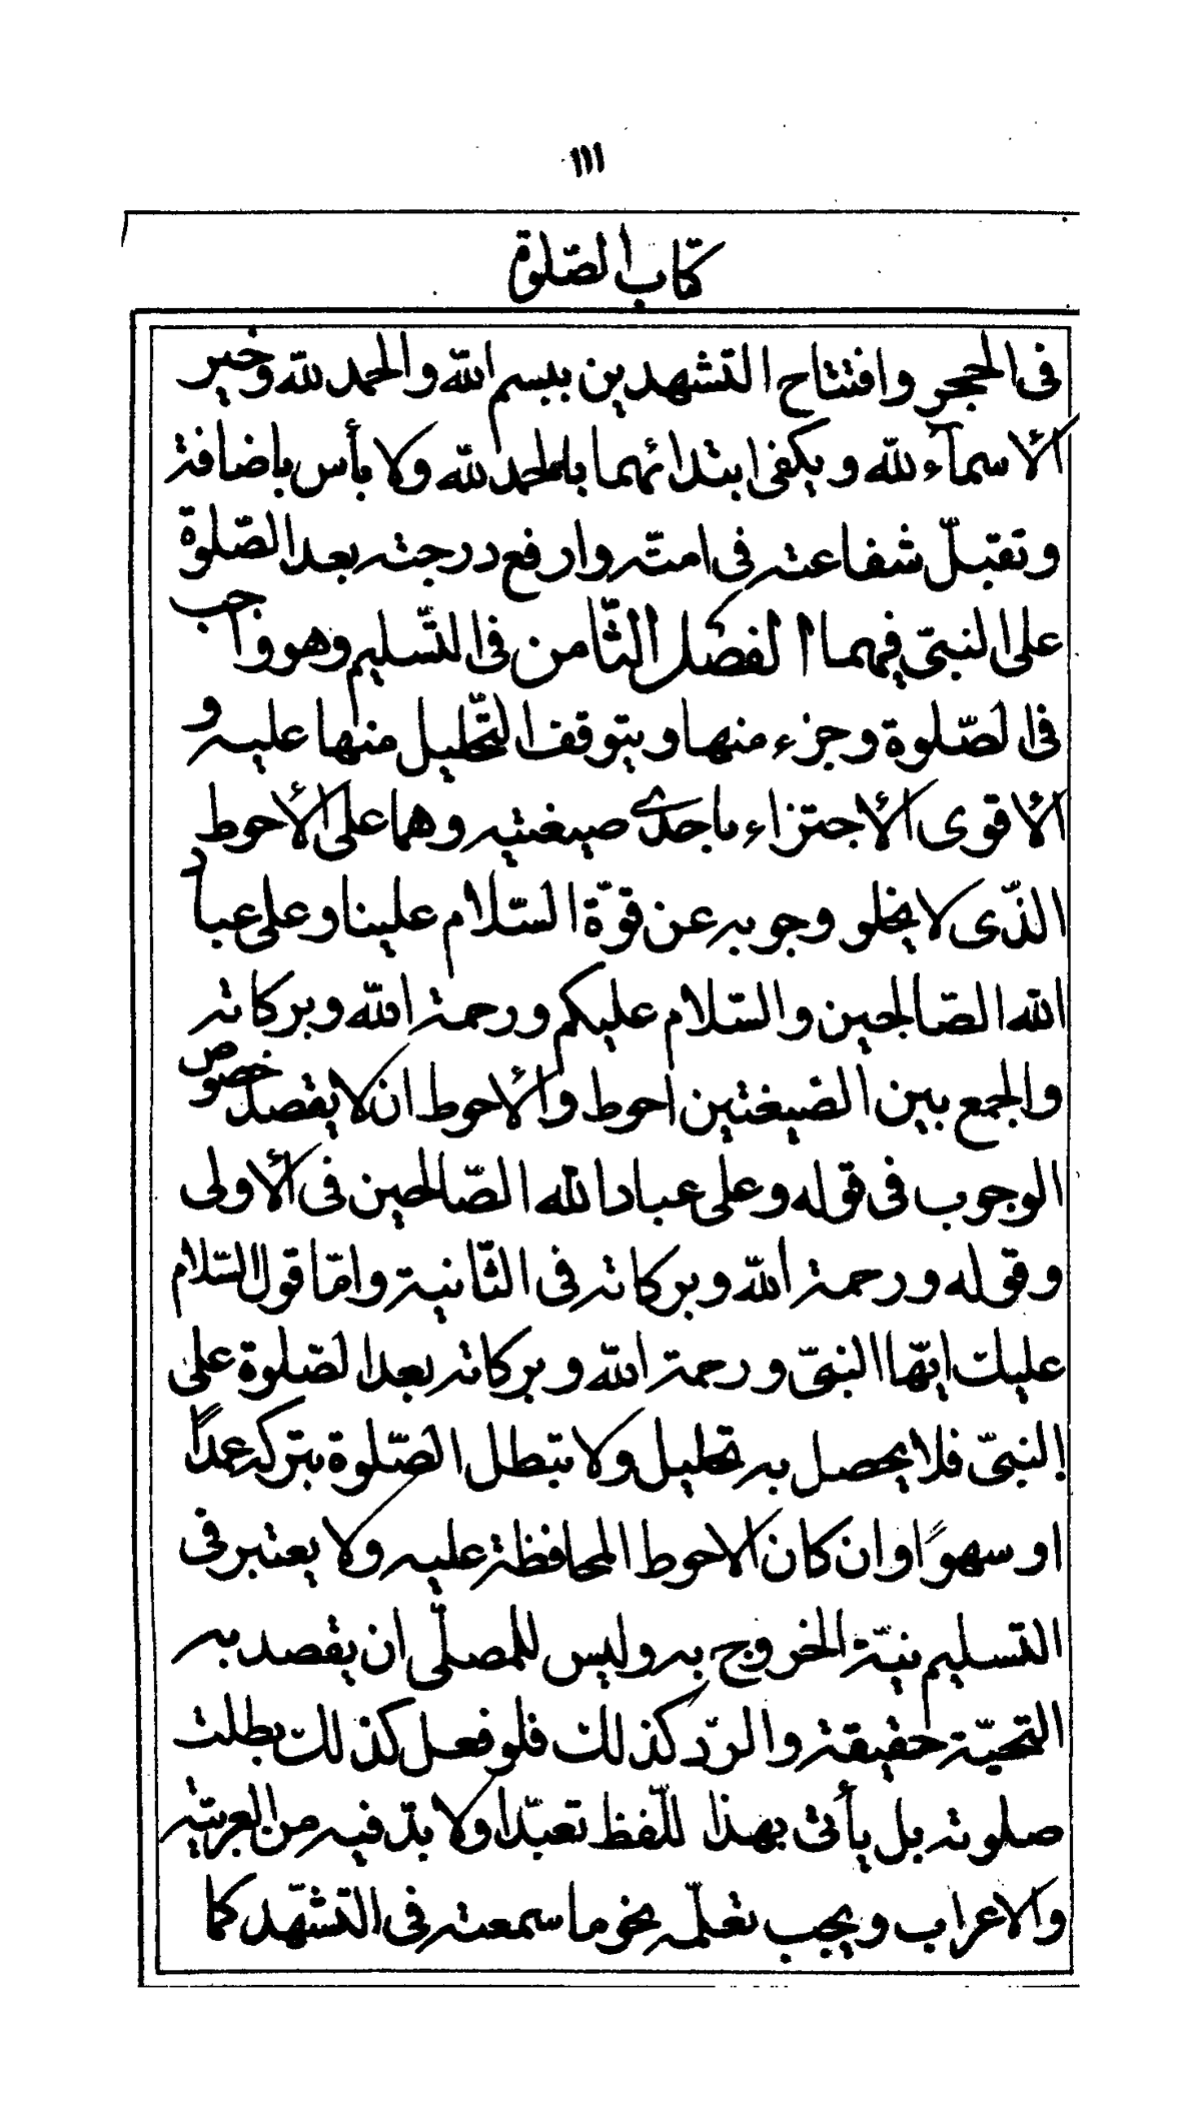 ١١١
كتاب الصّلوة
فى الحجر وافتتاح التشهدين ببسم اللّه والحمد للّه وخير
الأسمآء للّه ويكفى ابتدائهما بالحمد للّه ولا بأس باضافة
وتقبّل شفاعته فى امتّه وارفع درجته بعد الصّلوة
على النبىّ فيهما الفصل الثّامن فى التّسليم وهو واجب
فى الصّلوة وجزء منها ويتوقف التّحليل منها عليه و
الأقوى الأجتزاء باحدى صيغتيه وهما على الأحوط
الذّى لا يخلو وجوبه عن قوّة السّلام علينا وعلى عباد
اللّه الصّالحين والسّلام عليكم ورحمة اللّه وبركاته
والجمع بين الصّيغتين احوط والأحوط ان لا يقصد خصوص
الوجوب فى قوله وعلى عباد اللّه الصّالحين فى الأولى
وقوله ورحمة اللّه وبركاته فى الثّانية وامّا قول السّلام
عليك ايّها النبىّ ورحمة اللّه وبركاته بعد الصّلوة على
النبىّ فلا يحصل به تحليل ولا تبطل الصّلوة بتركه عمداً
او سهوًا وان كان الاحوط المحافظة عليه ولا يعتبر فى
التسليم نيّة الخروج به وليس للمصلّى ان يقصد به
التحيّة حقيقة والردّ كذلك فلو فعل كذلك بطلت
صلوته بل يأتى بهذا للّفظ تعبّدا ولا بدّ فيه من العربيّة
والاعراب ويجب تعلّمه نحو ما سمعته فى التشهّد كما